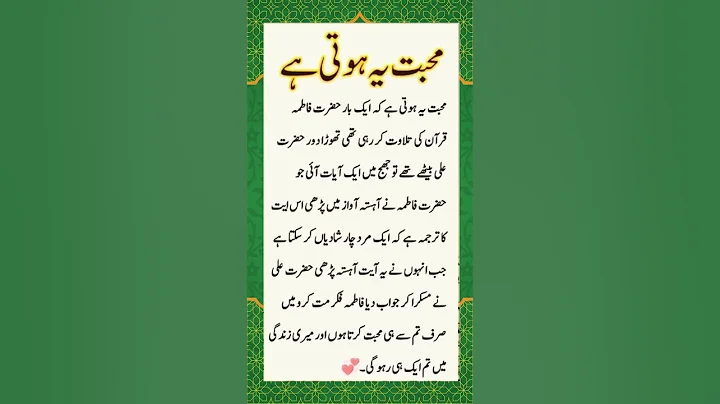 محبت یہ ہوتی ہے
محبت یہ ہوتی ہے کہ ایک بار حضرت فاطمہ
قرآن کی تلاوت کر رہی تھی تھوڑا دور حضرت
علی بیٹھے تھے تو جھج میں ایک آیات آئی جو
حضرت فاطمہ نے آہستہ آواز میں پڑھی اس ایت
کا ترجمہ ہے کہ ایک مرد چار شادیاں کر سکتا ہے
جب انہوں نے یہ آیت آہستہ پڑھی حضرت علی
نے مسکرا کر جواب دیا فاطمہ فکر مت کرو میں
صرف تم سے ہی محبت کرتا ہوں اور میری زندگی
میں تم ایک ہی رہو گی۔ 💕